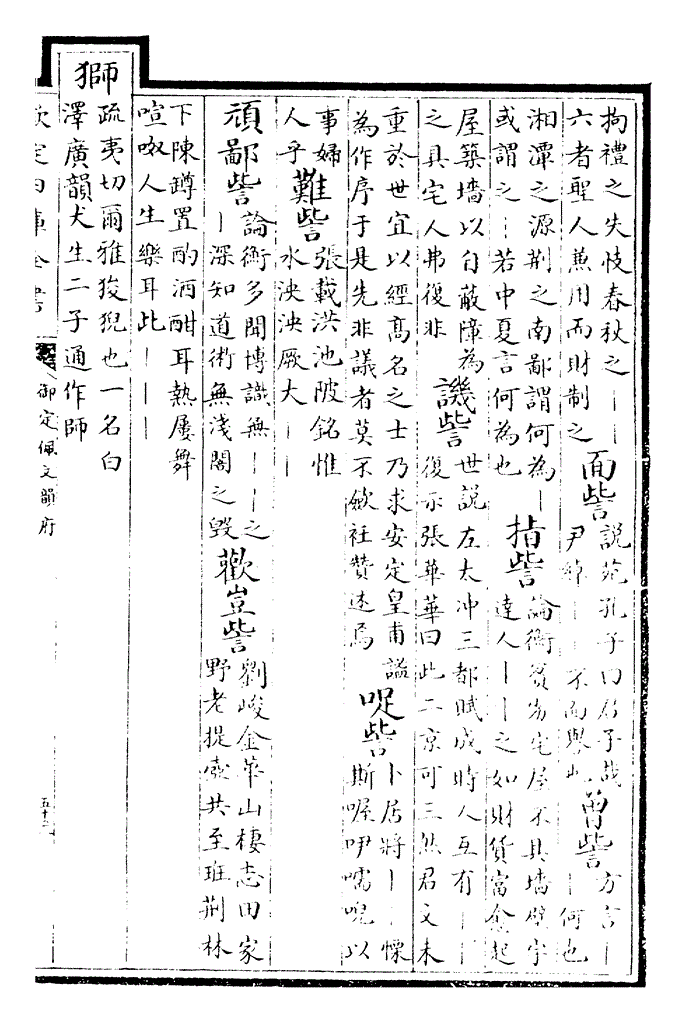 拘禮之失忮春秋之｜｜
六者聖人兼用而財制之
面訾
説苑孔子曰君子哉
尹綽｜｜不面譽也
曾訾
方言｜
｜何也
湘潭之源荆之南鄙謂何為｜
或謂之｜若中夏言何為也
指訾
論衡貧劣宅屋不具墻壁宇
達人｜｜之如財貨富愈起
屋築墻以自蔽障為
之具宅人弗復非
譏訾
世説左太冲三都賦成時人互有｜｜
復示張華華曰此二京可三然君文未
重於世宜以經髙名之士乃求安定皇甫謐
為作序于是先非議者莫不斂衽賛述焉
哫訾
卜居將｜｜慄
斯喔咿嚅唲以
事婦
人乎
難訾
張載洪池陂銘惟
水泱泱厥大｜｜
頑鄙訾
論衡多聞博識無｜｜｜之
｜深知道術無淺闇之毁
歡豈訾
劉峻金華山棲志田家
野老提壺共至班荆林
下陳罇置酌酒酣耳熱屢舞
喧呶人生樂耳此｜｜｜
獅
疏夷切爾雅狻猊也一名白
澤廣韻犬生二子通作師
欽定四庫全書
御定佩文韻府